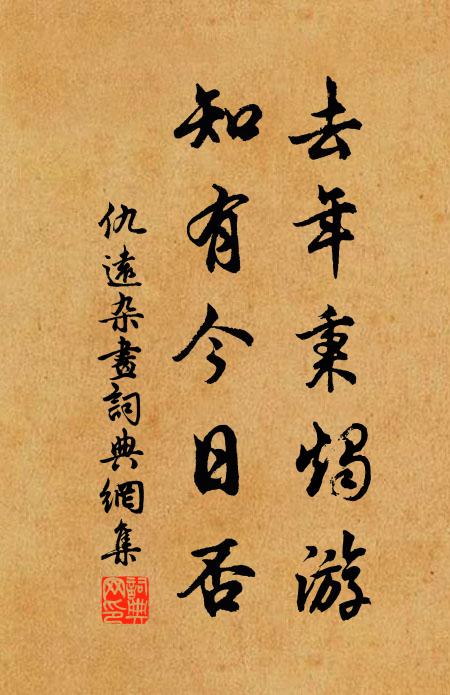 去年秉燭游
知有今日否
仇遠杂畫詞典網集
詞典
网印